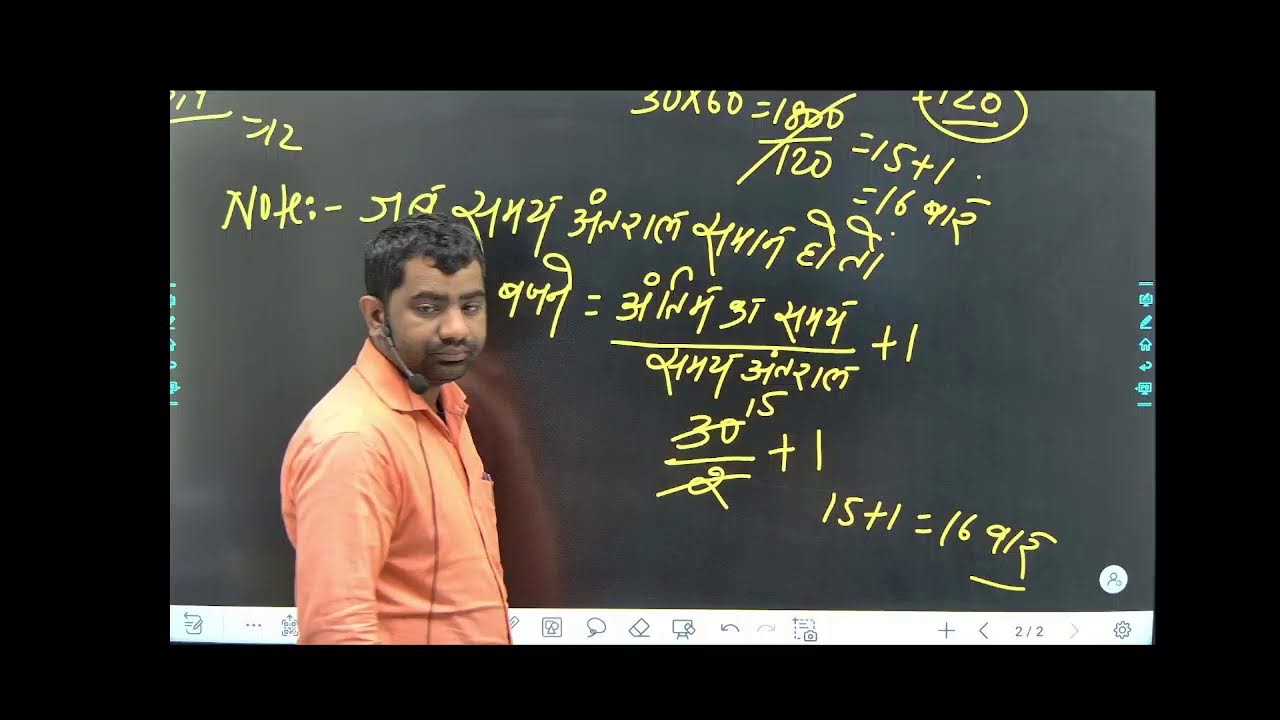 30×60 = 1800
120
+120
= 15+1
= 16 बार
=12
Note:- जब समय अंतराल समान हो तो
बजने = अंतिम का समय
समय अंतराल
+1
30 15
2
+1
15+1 = 16 बार
2/2